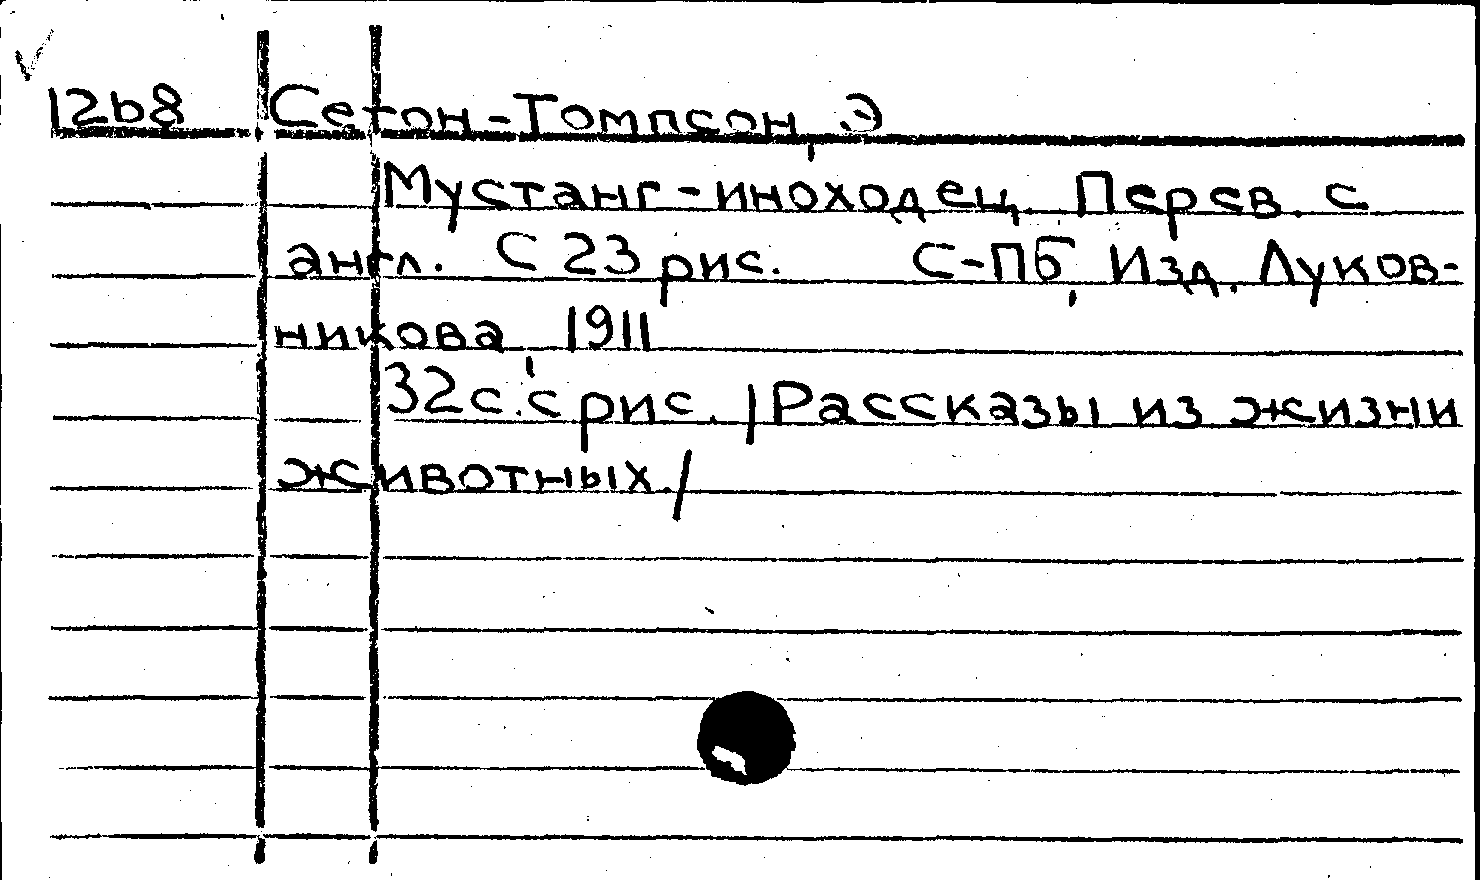 12b8 Сетон-Томпсон, Э
Мустанг-иноходец. Перев. с
англ. С 23 рис. С-Пб, Изд. Луков-
никова, 1911
32 с. с рис. /Рассказы из жизни
животных./